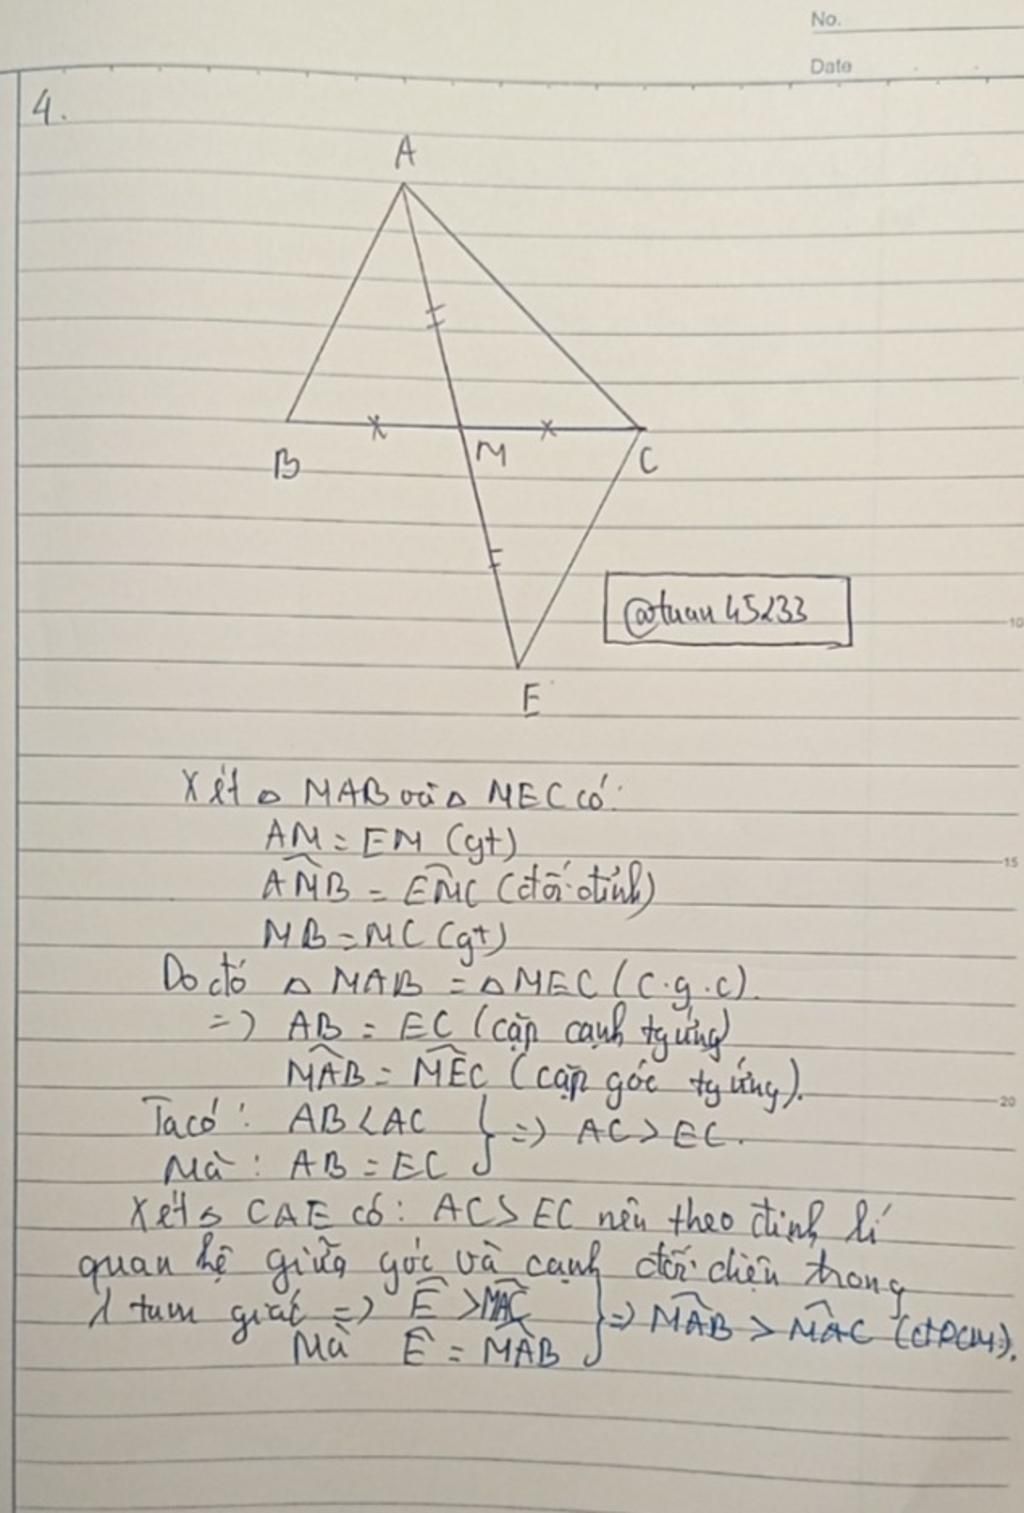 No.
Date
4.
A
B
M
C
@tuan45233
10
E
Xét △ MAB và △ MEC có:
AM = EM (gt)
15
AM̂B = EM̂C (đối đỉnh)
MB = MC (gt)
Do đó △ MAB = △ MEC (c.g.c).
=> AB = EC (cặp cạnh tg ứng)
MÂB = MÊC (cặp góc tg ứng).
20
Ta có: AB < AC } => AC > EC.
Mà: AB = EC
Xét △ CAE có: AC > EC nên theo định lí
quan hệ giữa góc và cạnh đối diện trong
1 tam giác => Ê > MÂC } => MÂB > MÂC (đPCM).
Mà Ê = MÂB